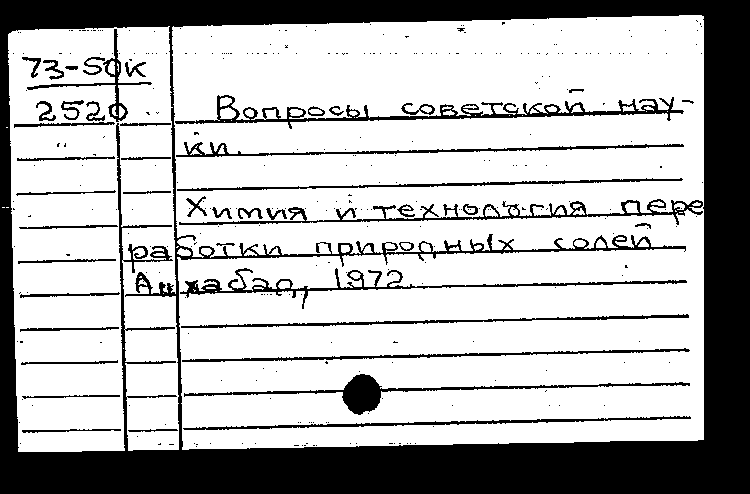 73-50к
2520
Вопросы советской нау-
ки.
Химия и технология пере
работки природных солей
Ашхабад, 1972.